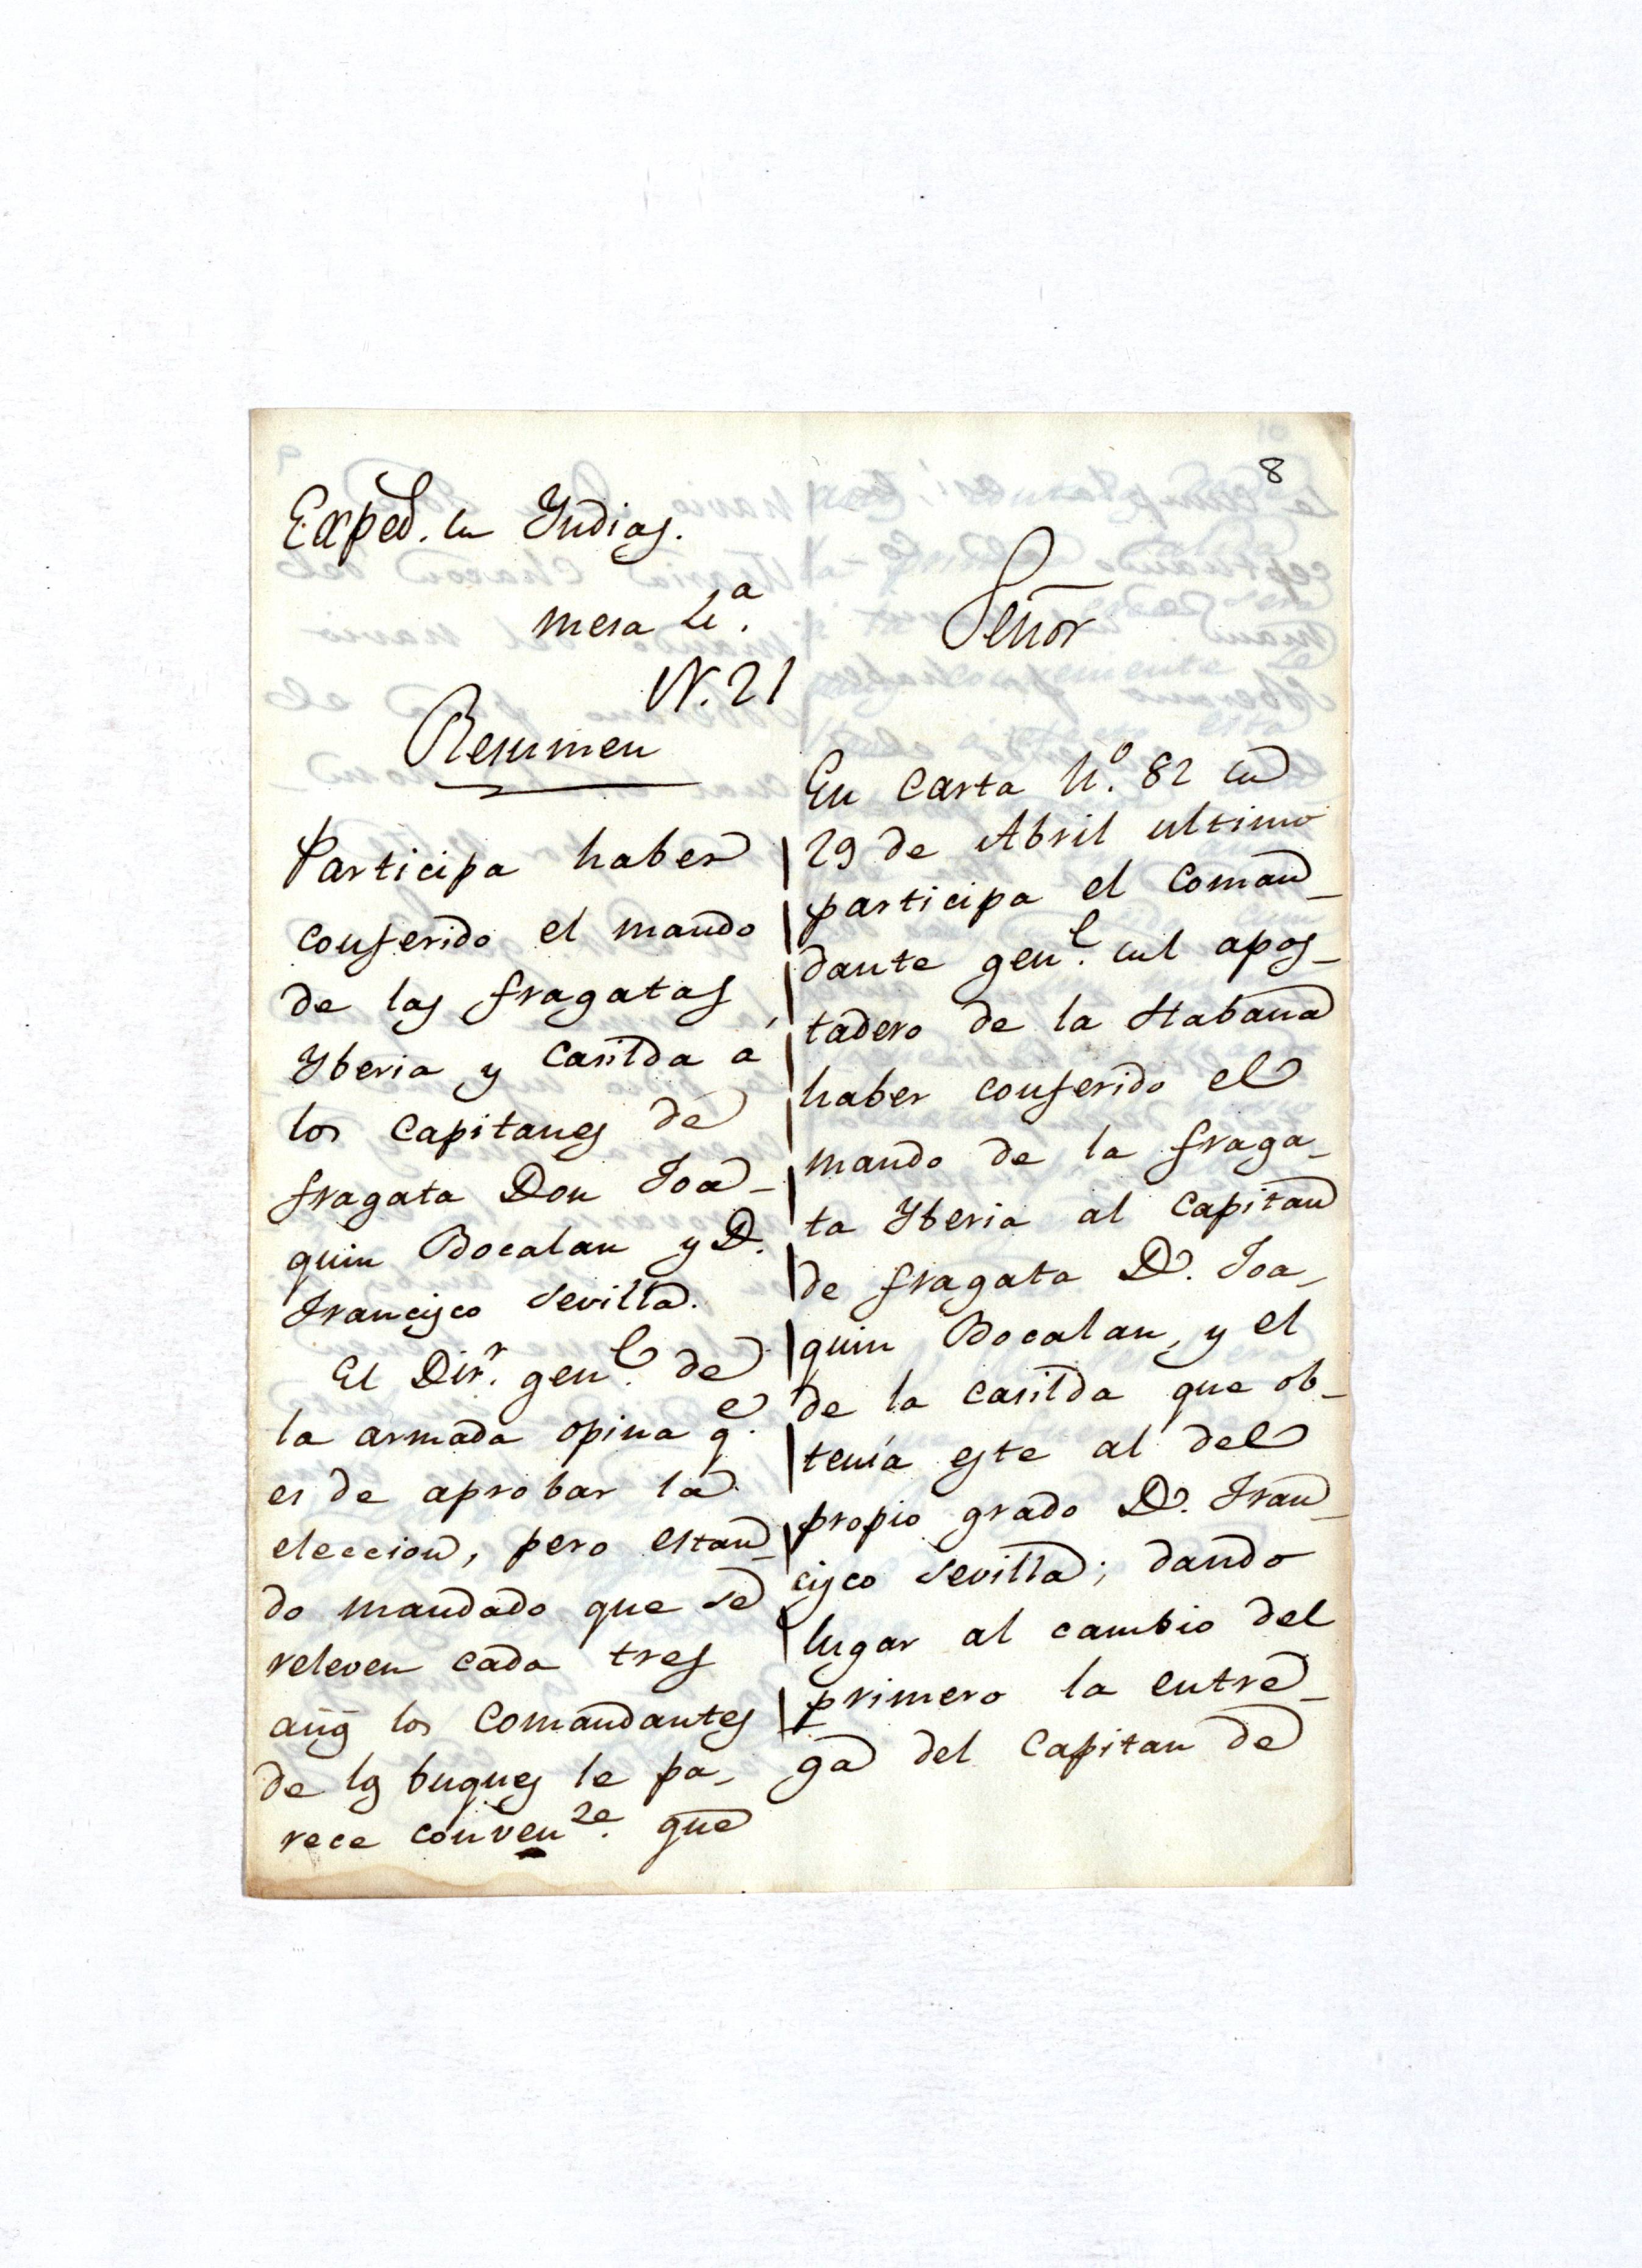 8
Exped. de Yndias.
mesa 4ª.
N. 21
Resumen
Participa haber
conferido el mando
de las fragatas
Yberia y Casilda á
los Capitanes de
fragata Don Joa-
quin Bocalan y D.
Francisco Sevilla.
El Dirʳ. genˡ. de
la armada opina qᵉ.
es de aprobar la
eleccion, pero estan-
do mandado que se
releven cada tres
años los Comandantes
de los buques le pa-
rece convenᵗᵉ. que
Señor
En Carta Nº. 82 de
29 de Abril ultimo
participa el Coman-
dante genˡ. del apos-
tadero de la Habana
haber conferido el
mando de la fraga-
ta Yberia al Capitan
de fragata D. Joa-
quin Bocalan, y el
de la Casilda que ob-
tenía este al del
propio grado D. Fran-
cisco Sevilla; dando
lugar al cambio del
primero la entre-
ga del Capitan de